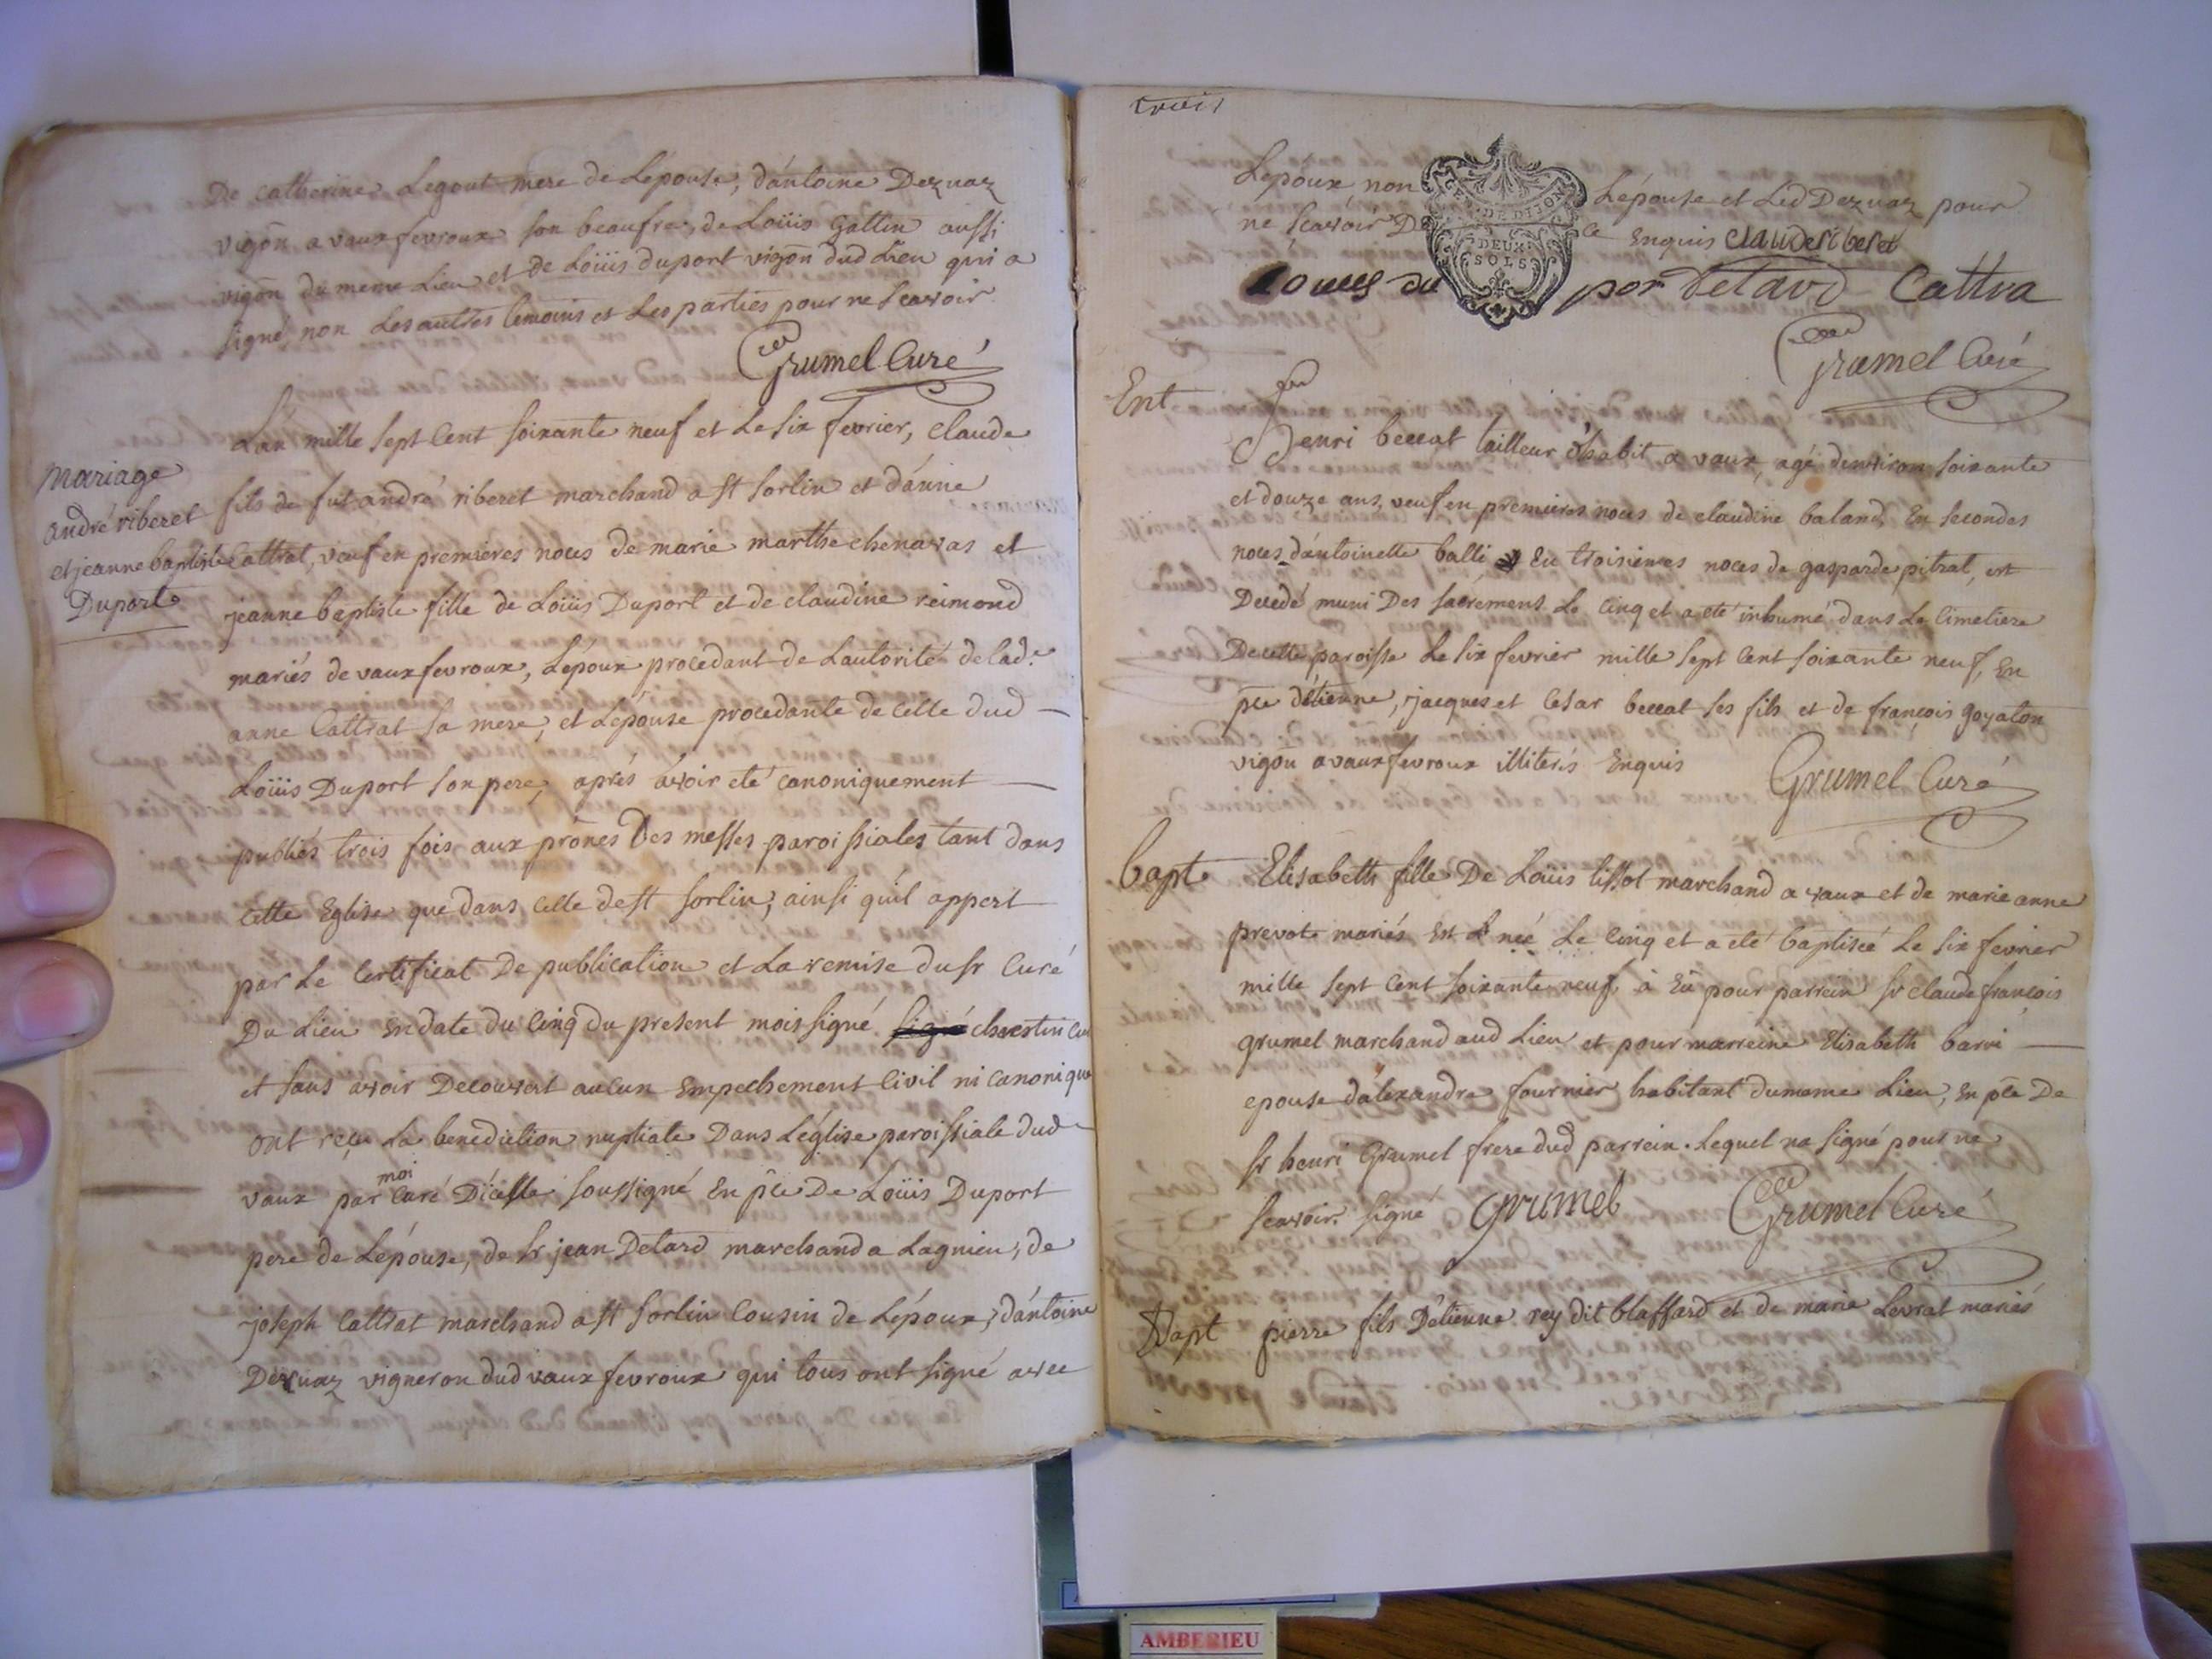 De catherine Legout mere de Lépouse, d'antoine Dezuaz
vigõn a vaux fevroux son beaufrere, de Loüis Gallin aussi
vigõn du meme Lieu et de Loüis duport vigõn dud Lieu qui a
signé, non Les autres temoins et Les parties pour ne Scavoir
Grumel Curé
Mariage
andré riberet
et jeanne baptiste
Duport
L'an mille sept Cent soixante neuf et Le six fevrier, claude
fils de fut andré riberet marchand a st sorlin et d'anne
Cattrat, veuf en premieres noces de marie marthe chenavas et
jeanne baptiste fille de Loüis Duport et de claudine reimond
mariés de vaux fevroux, L'époux procedant de Lautorité de lad.e
anne Cattrat sa mere, et Lépouse procedante de Celle dud
Loüis Duport son pere, aprés avoir eté canoniquement
publiés trois fois aux prônes Des messes paroissiales tant dans
cette Eglise que dans celle de st sorlin, ainsi qu'il appert
par Le Certificat De publication et La remise du sr Curé
Du Lieu en date du Cinq du present mois signé signé
et sans avoir Decouvert aucun Empechement Civil ni canonique
ont reçu La benediction nuptiale Dans L'église paroissiale dud
vaux par moi Curé D'icelle soussigné En p͠ce De Loüis Duport
pere de Lépouse, de Sr jean Detard marchand a Lagnieu, de
joseph Cattrat marchand a st sorlin Cousin de Lépoux, d'antoine
Dezuaz vigneron dud vaux fevroux qui tous ont signé avec
trois
Lepoux non Lépouse et Led Dezuaz pour
ne Scavoir De ce Enquis clauderiberet
GE. DE DIJON
DEUX
SOLS
Loues du por detard Cattra
Grumel Curé
Ent
henri beccat tailleur d'habit a vaux, agé denviron soixante
et douze ans, veuf en premieres noces de claudine baland, En secondes
noces d'antoinette balli En troisiemes noces de gasparde pitrat, est
Decedé muni Des sacrement Le Cinq et a eté inhumé dans Le Cimetiere
De cette paroisse Le six fevrier mille sept Cent soixante neuf, En
p͠ce d'étienne, jacques et Cesar beccat ses fils et de françois goyaton
vigõn a vaux fevroux illiterés Enquis Grumel Curé
bapt
Elisabeth fille De Loüis tissot marchand a vaux et de marie anne
prevot mariés Est née Le Cinq et a eté baptiseé Le six fevrier
mille sept Cent soixante neuf, à Eû pour parrein sr claude françois
grumel marchand aud Lieu et pour marreine Elisabeth barri
epouse d'alexandre fournier habitant du meme Lieu, En p͠ce De
sr henri Grumel frere dud parrein. Lequel na signé pour ne
scavoir. signé Grumel Grumel Curé
Bapt
pierre fils D'étienne rey dit blaffard et de marie Levrat mariés
AMBERIEU